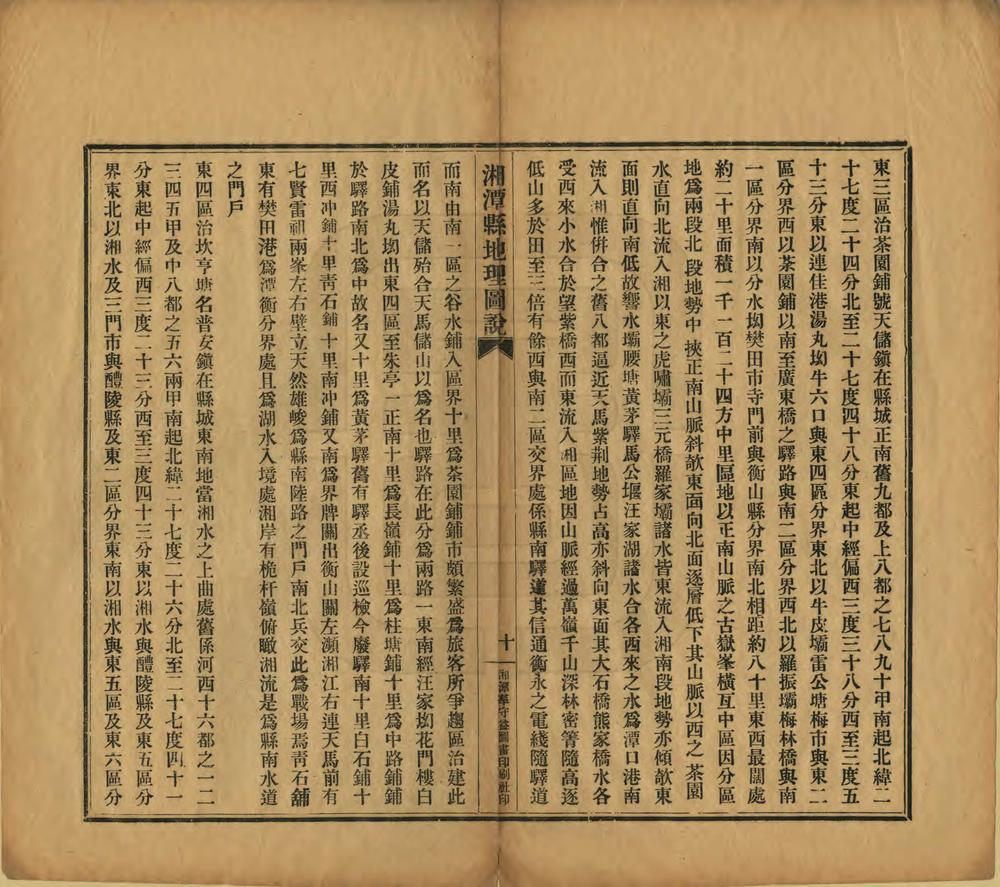 東三區治茶園鋪號天儲鎮在縣城正南舊九都及上八都之七八九十甲南起北緯二
十七度二十四分北至二十七度四十八分東起中經偏西三度三十八分西至三度五
十三分東以連住港湯丸坳牛六口與東四區分界東北以牛皮壩雷公塘梅市與東二
區分界西以茶園鋪以南至廣東橋之驛路與南二區分界西北以羅振壩梅林橋與南
一區分界南以分水坳樊田市寺門前與衡山縣分界南北相距約八十里東西最闊處
約二十里面積一千一百二十四方中里區地以正南山脈之古嶽峯橫亙中區因分區
地爲兩段北一段地勢中挾正南山脈斜欹東面向北面逐層低下其山脈以西之茶園
水直向北流入湘以東之虎嘯壩三元橋羅家壩諸水皆東流入湘南段地勢亦傾欹東
面則直向南低故響水壩腰塘黃茅驛馬公堰汪家湖諸水合各西來之水爲潭口港南
流入湘惟併合之舊八都逼近天馬紫荆地勢占高亦斜向東面其大石橋熊家橋水各
受西來小水合於望紫橋西而東流入湘區地因山脈經過萬嶺千山深林密箐隨高逐
低山多於田至三倍有餘西與南二區交界處係縣南驛道其信通衡永之電綫隨驛道
湘潭縣地理圖說
十
湘潭
守益圖書印刷社印
而南由南一區之谷水鋪入區界十里爲茶園鋪鋪市頗繁盛爲旅客所爭趨區治建此
而名以天儲殆合天馬儲山以爲名也驛路在此分爲兩路一東南經汪家坳花門樓白
皮鋪湯丸坳出東四區至朱亭一正南十里爲長嶺鋪十里爲柱塘鋪十里爲中路鋪鋪
於驛路南北爲中故名又十里爲黃茅驛舊有驛丞後設巡檢今廢驛南十里白石鋪十
里西冲鋪十里靑石鋪十里南冲鋪又南爲界牌關出衡山關左瀕湘江右連天馬前有
七賢雷祖兩峯左右壁立天然雄峻爲縣南陸路之門戶南北兵交此爲戰場焉靑石舖
東有樊田港爲潭衡分界處且爲湖水入境處湘岸有桅杆嶺俯瞰湘流是爲縣南水道
之門戶
東四區治坎亨塘名普安鎭在縣城東南地當湘水之上曲處舊係河西十六都之一二
三四五甲及中八都之五六兩甲南起北緯二十七度二十六分北至二十七度四十一
分東起中經偏西三度二十三分西至三度四十三分東以湘水與醴陵縣及東五區分
界東北以湘水及三門市與醴陵縣及東二區分界東南以湘水與東五區及東六區分